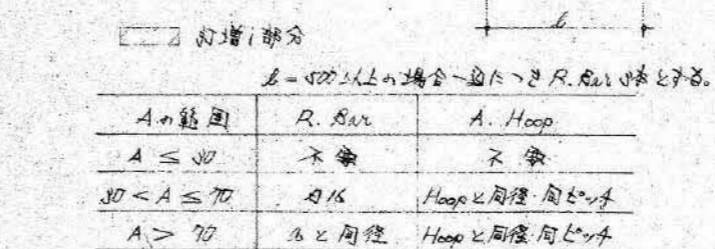 b
打増し部分
b = 500以上の場合一辺につき R. Bar 3本とする。
Aの範囲 R. Bar A. Hoop
A ≤ 30 不要 不要
30 < A ≤ 70 D16 Hoopと同径・同ピッチ
A > 70 と同径 Hoopと同径・同ピッチ